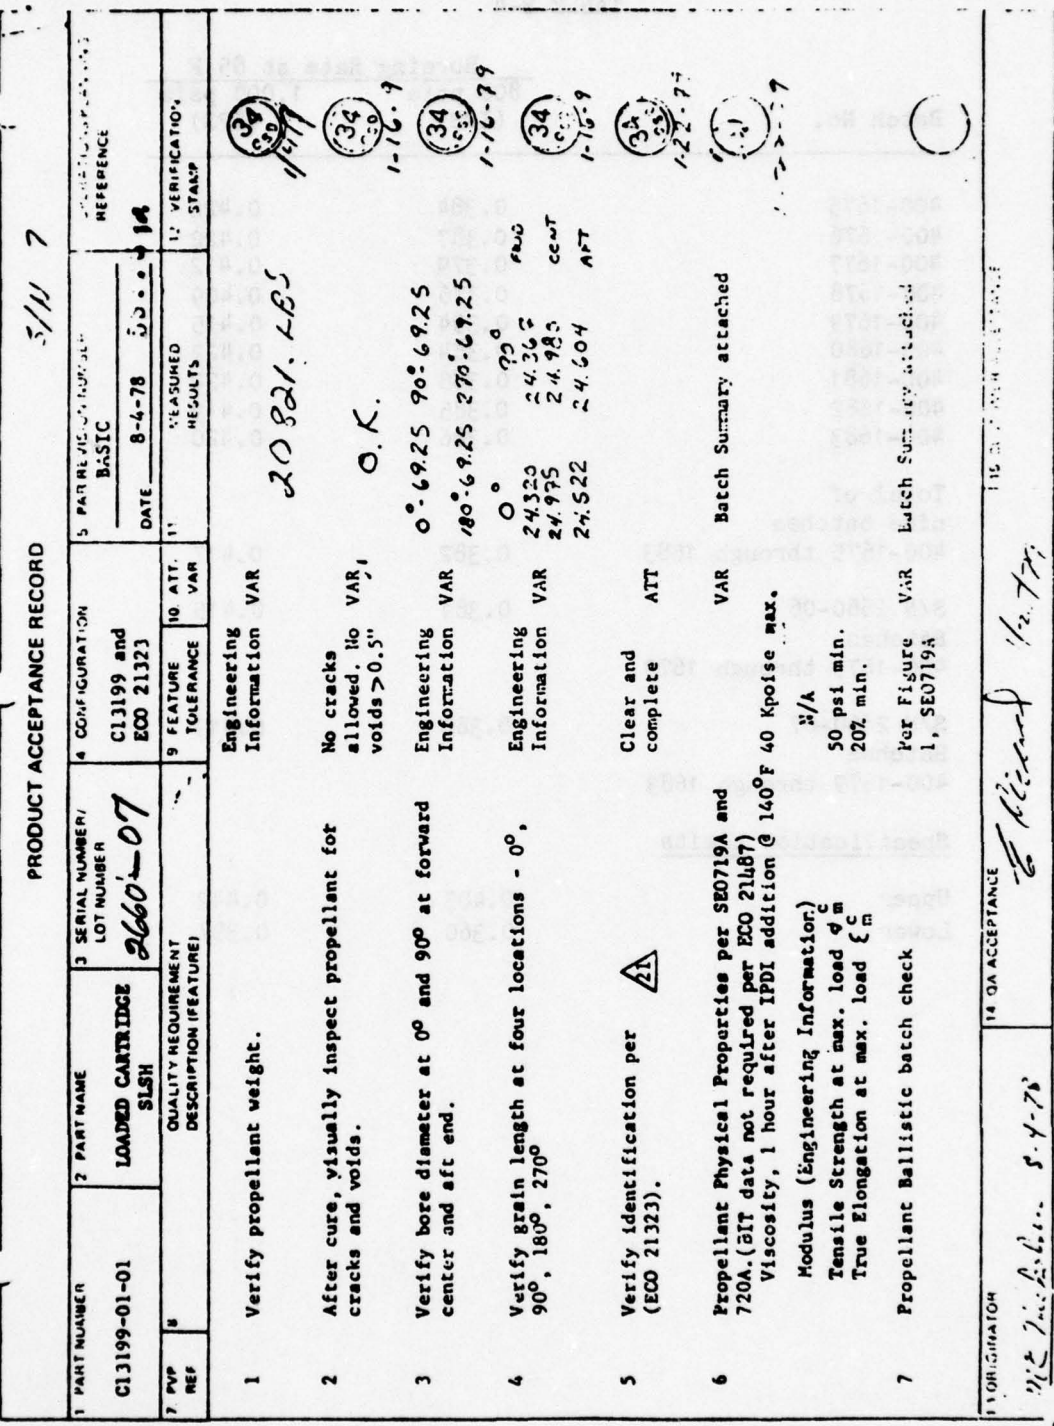 PRODUCT ACCEPTANCE RECORD
1 PART NUMBER
C13199-01-01
2 PART NAME
LOADED CARTRIDGE
SLSH
3 SERIAL NUMBER/
LOT NUMBER
2660-07
4 CONFIGURATION
C13199 and
ECO 21323
5 PAR REVISION NUMBER
BASIC
DATE 8-4-78
REFERENCE
7. PVP
REF
8
QUALITY REQUIREMENT
DESCRIPTION (FEATURE)
9 FEATURE
TOLERANCE
10. ATT.
VAR
11
MEASURED
RESULTS
12 VERIFICATION
STAMP
1 Verify propellant weight. Engineering
Information VAR 20821.LBS 34
2 After cure, visually inspect propellant for
cracks and voids.
No cracks
allowed. No VAR
voids >0.5"
O.K.
34
1-16-9
3 Verify bore diameter at 0° and 90° at forward
center and aft end.
Engineering
Information VAR
0°-69.25 90°-69.25
180°-69.25 270°-69.25
34
1-16-79
4 Verify grain length at four locations - 0°,
90°, 180°, 270°
Engineering
Information VAR
0° 90°
24.320 24.367 FWD
24.975 24.985 CENT
24.522 24.604 AFT
34
1-16-9
5 Verify identification per
(ECO 21323).
21
Clear and
complete ATT
34
1-22-79
6 Propellant Physical Properties per SE0719A and
720A. (BIT data not required per ECO 21487)
Viscosity, 1 hour after IPDI addition @ 140°F 40 Kpoise max.
VAR Batch Summary attached
Modulus (Engineering Information) N/A
Tensile Strength at max. load σ c m 50 psi min.
True Elongation at max. load ε c m 20% min.
7 Propellant Ballistic batch check Per Figure VAR Batch Summary attached
1, SE0719A
14. QA ACCEPTANCE
13 ORIGINATOR
8-4-78